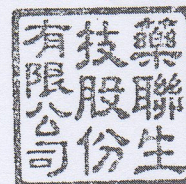 藥聯生
技股份
有限公司